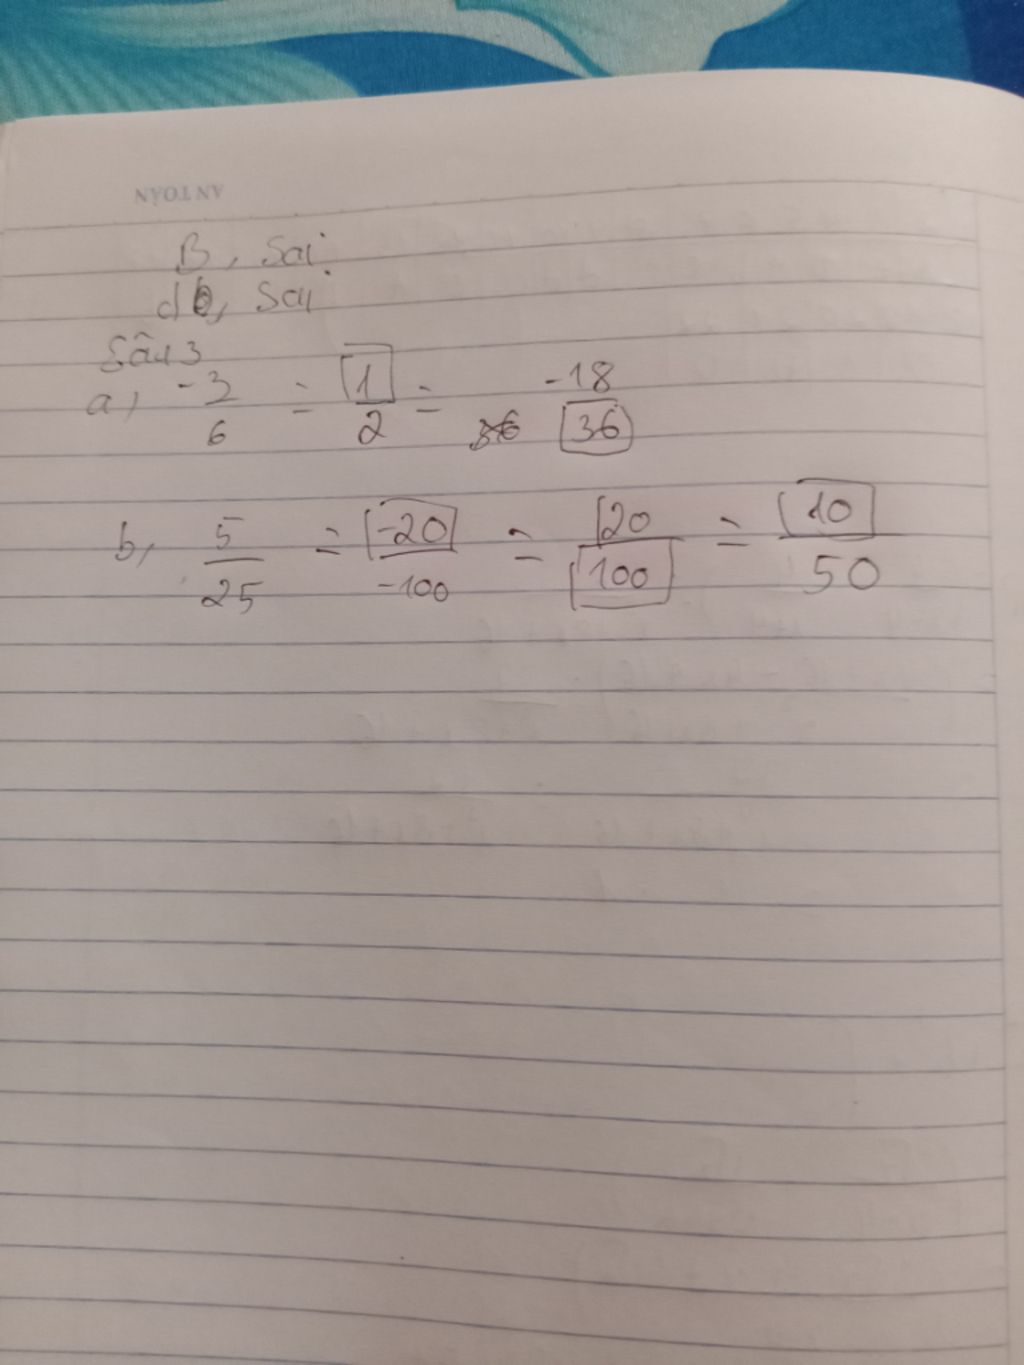 AN TOÀN
B, Sai
db, Sai
Câu 3
a, -3/6 = 1/2 = -18/36
b, 5/25 = -20/-100 = 20/100 = 10/50